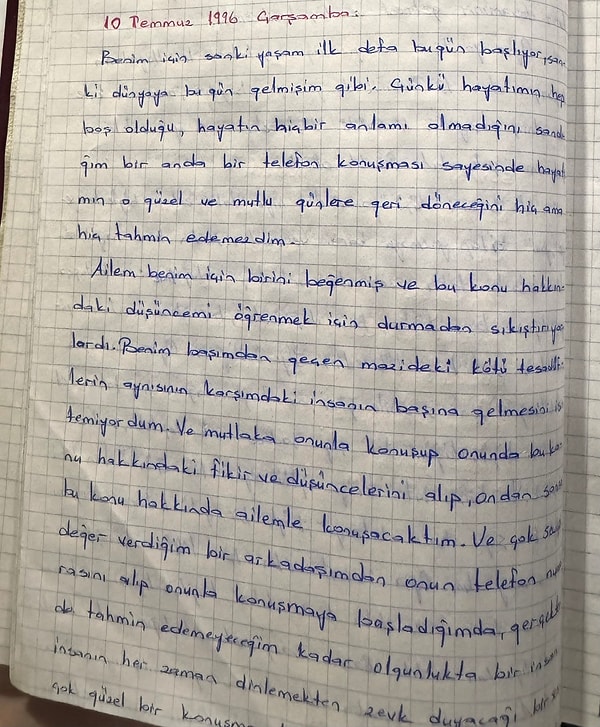 10 Temmuz 1996 Çarşamba:
Benim için sanki yaşam ilk defa bugün başlıyor, san-
ki dünyaya bu gün gelmişim gibi. Günkü hayatımın hep
boş olduğu, hayatın hiçbir anlamı olmadığını sandı
ğım bir anda bir telefon konuşması sayesinde hayat
mın o güzel ve mutlu günlere geri döneceğini hiç ama
hiç tahmin edemezdim.
Ailem benim için birini beğenmiş ve bu konu hakkın-
daki düşüncemi öğrenmek için durmadan sıkıştırıyor
lardı. Benim başımdan geçen mazideki kötü tesadüf-
lerin aynısının karşımdaki insanın başına gelmesini is
temiyordum. Ve mutlaka onunla konuşup onunda bu ko
nu hakkındaki fikir ve düşüncelerini alıp, ondan sonra
bu konu hakkında ailemle konuşacaktım. Ve çok
değer verdiğim bir arkadaşımdan onun telefon nu
rasını alıp onunla konuşmaya başladığımda, gerçekte
de tahmin edemeyeceğim kadar olgunlukta bir insan
insanın her zaman dinlemekten zevk duyacağı bir
çok güzel bir